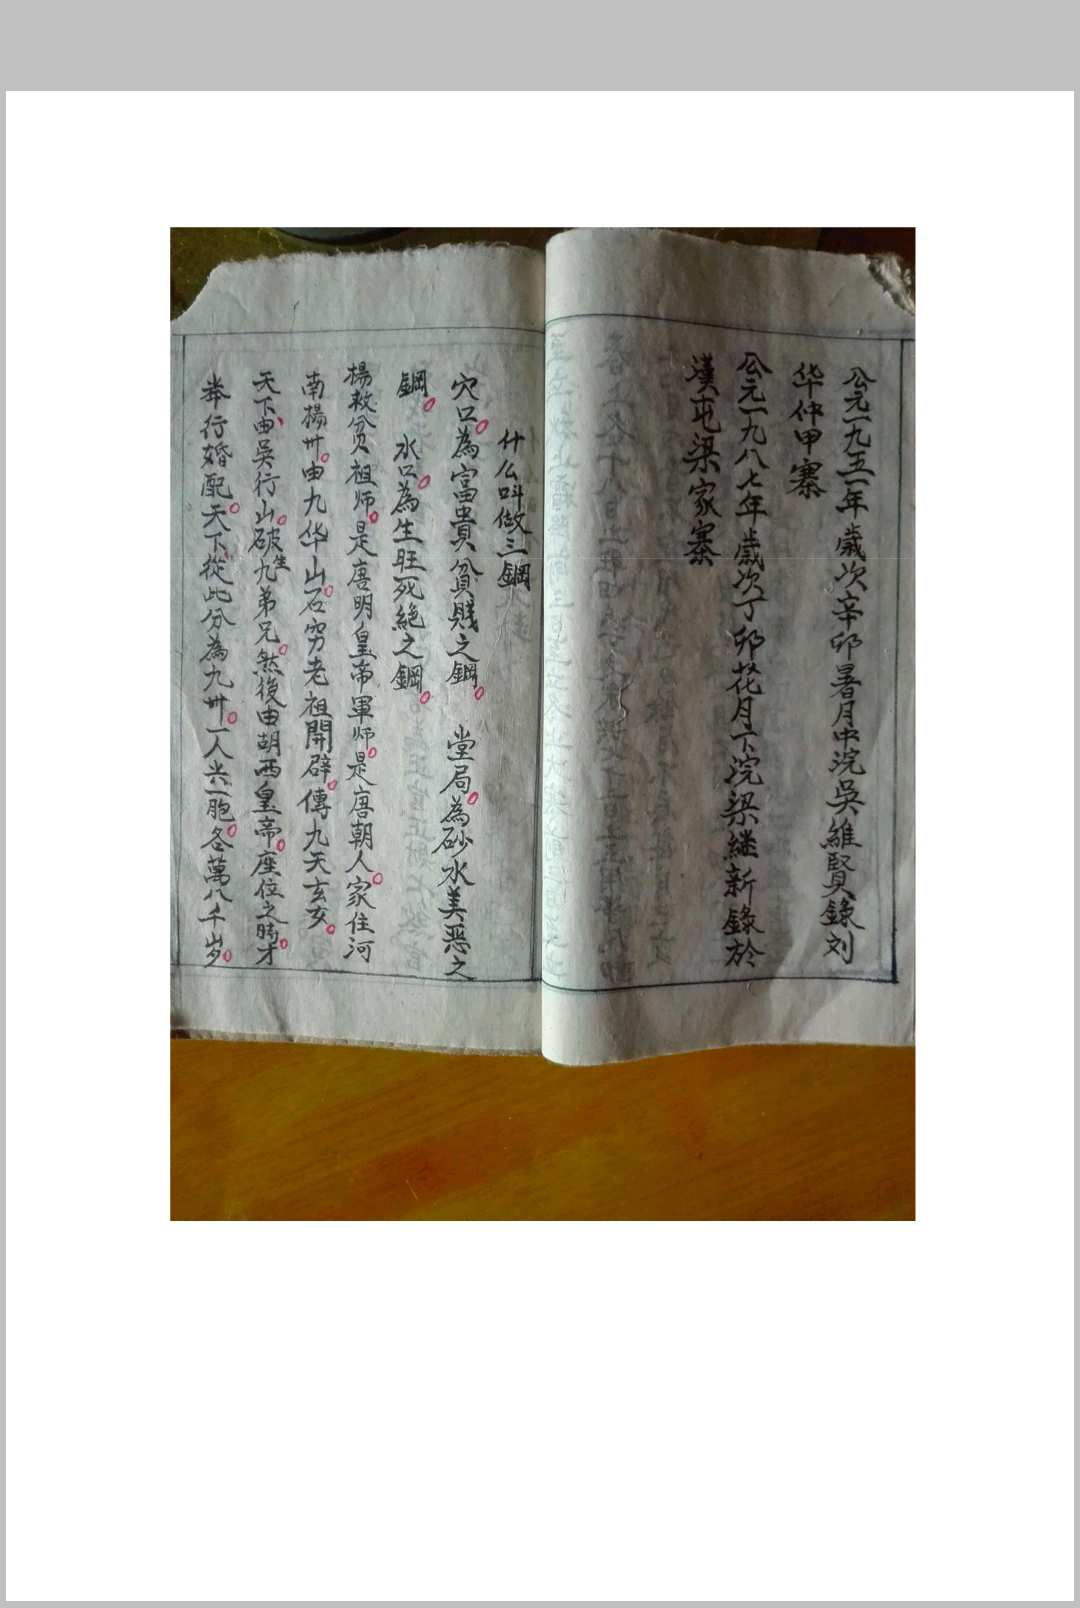 公元一九五一年歲次辛卯暑月中浣吳維賢錄刘
华仲甲寨
公元一九八七年歲次丁卯花月下浣梁继新錄於
漢屯梁家寨
什么叫做三鋼
穴口。為富貴貧賤之鋼。 堂局。為砂水美惡之
鋼。 水口。為生旺死絕之鋼。
楊救贫祖师。是唐明皇帝軍师。是唐朝人。家住河
南楊卅。由九华山。石穷老祖開辟。傳九天玄女。
天下由吳行山。破生九弟兄。然後由胡西皇帝。座位之時。才
举行婚配。天下從此分為九卅。一人共一胞。各萬八千岁。